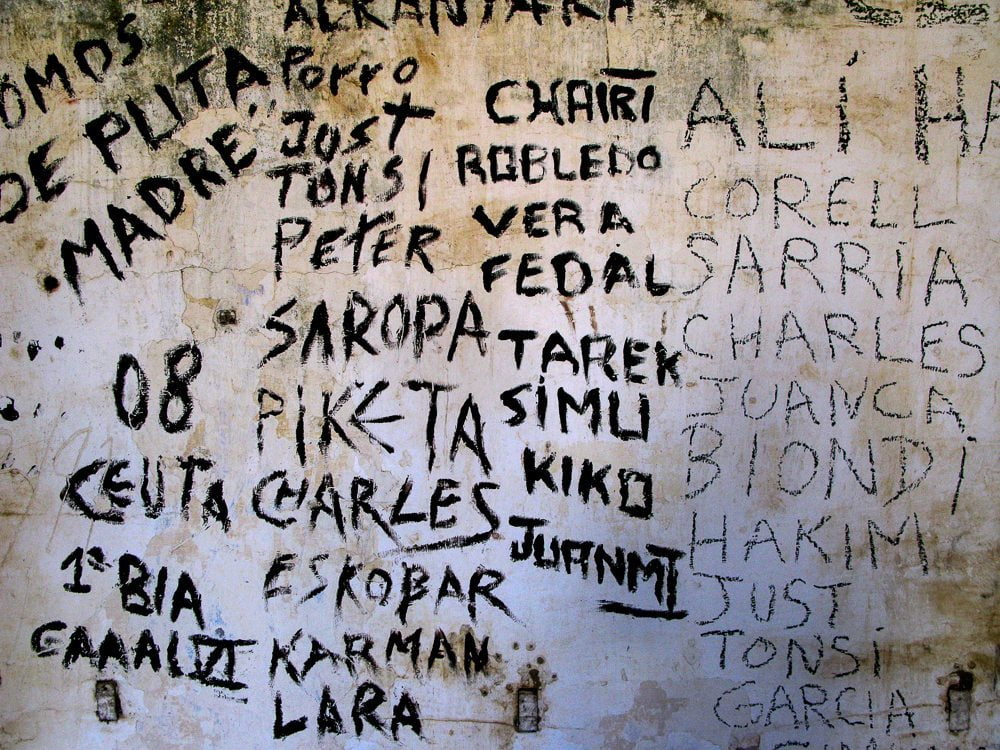 OMOS
DE PUTA
MADRE
08
CEUTA
1ª BIA
ALKANTARA
Porro
JUST
TONSI
PETER
SAROPA
PIKETA
CHARLES
ESKOBAR
KARMAN
LARA
CHAIRI
ROBLEDO
VERA
FEDAL
TAREK
SIMU
KIKO
JUANMI
ALÍ HA
CORELL
SARRIA
CHARLES
JUANCA
BIONDI
HAKIM
JUST
TONSI
GARCIA